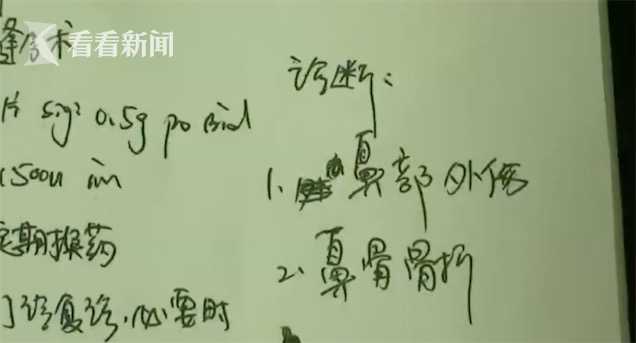 缝合术
看看新闻
片 sig: 0.5g po Bid
1500u im
定期换药
门诊复诊,必要时
诊断:
1. 鼻部外伤
2. 鼻骨骨折